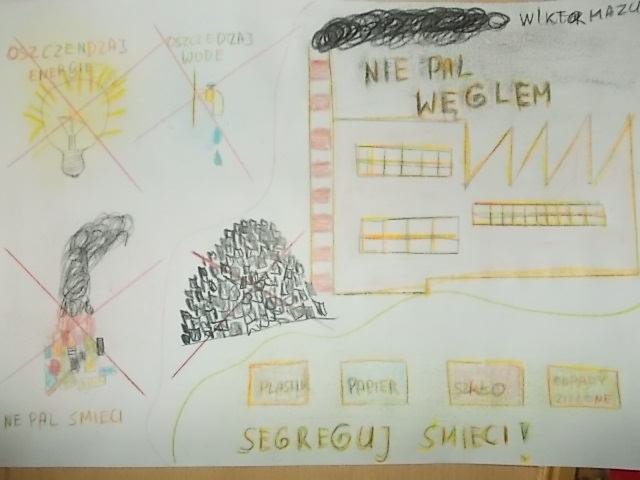 OSZCZENDZAJ
ENERGIE
OSZCZEDZAJ
WODE
WIKTOR MAZU
NIE PAL
WĘGLEM
NE PAL SMIECI
PLASTIK
PAPIER
SZKŁO
ODPADY
ZIELONE
SEGREGUJ SMIECI!